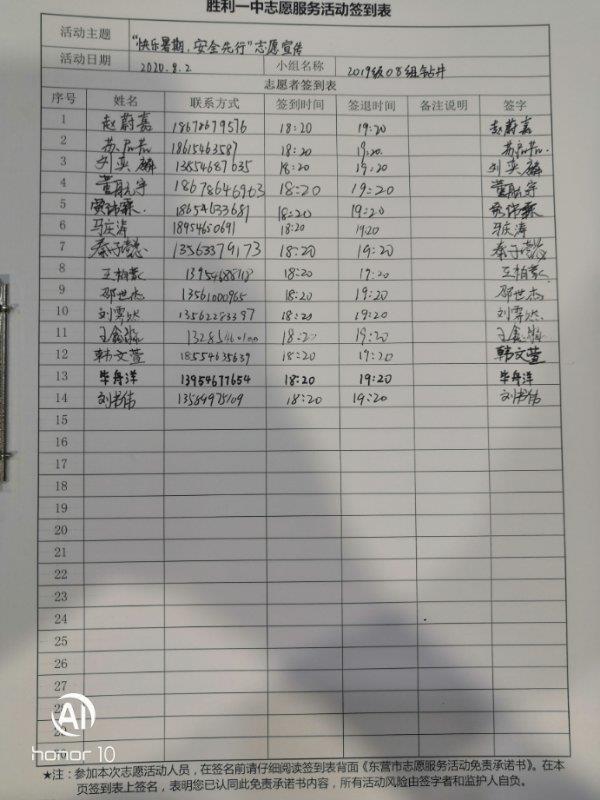 胜利一中志愿服务活动签到表
活动主题 "快乐暑期,安全先行"志愿宣传
活动日期 2020.8.2 小组名称 2019级08组钻井
志愿者签到表
序号 姓名 联系方式 签到时间 签退时间 备注说明 签字
1 赵蔚嘉 18678679576 18:20 19:20 赵蔚嘉
2 18615463587 18:20 19:20
3 刘奕麟 13854687635 18:20 19:20 刘奕麟
4 董航宇 18678646963 18:20 19:20 董航宇
5 18654633681 18:20 19:20
6 马庆涛 18954650691 18:20 19:20 马庆涛
7 秦子懿 13563379173 18:20 19:20 秦子懿
8 王柏 18:20 19:20 王柏
9 邵世杰 13561000965 18:20 19:20 邵世杰
10 刘霁然 13562283397 18:20 19:20 刘霁然
11 王鑫 18:20 19:20 王鑫
12 韩文萱 18554635639 18:20 19:20 韩文萱
13 毕舟洋 13954677654 18:20 19:20 毕舟洋
14 刘书伟 13589975109 18:20 19:20 刘书伟
15
16
17
18
19
20
21
22
23
24
25
26
27
AI
honor 10
★注:参加本次志愿活动人员,在签名前请仔细阅读签到表背面《东营市志愿服务活动免责承诺书》。在本
页签到表上签名,表明您已认同此免责承诺书内容,所有活动风险由签字者和监护人自负。